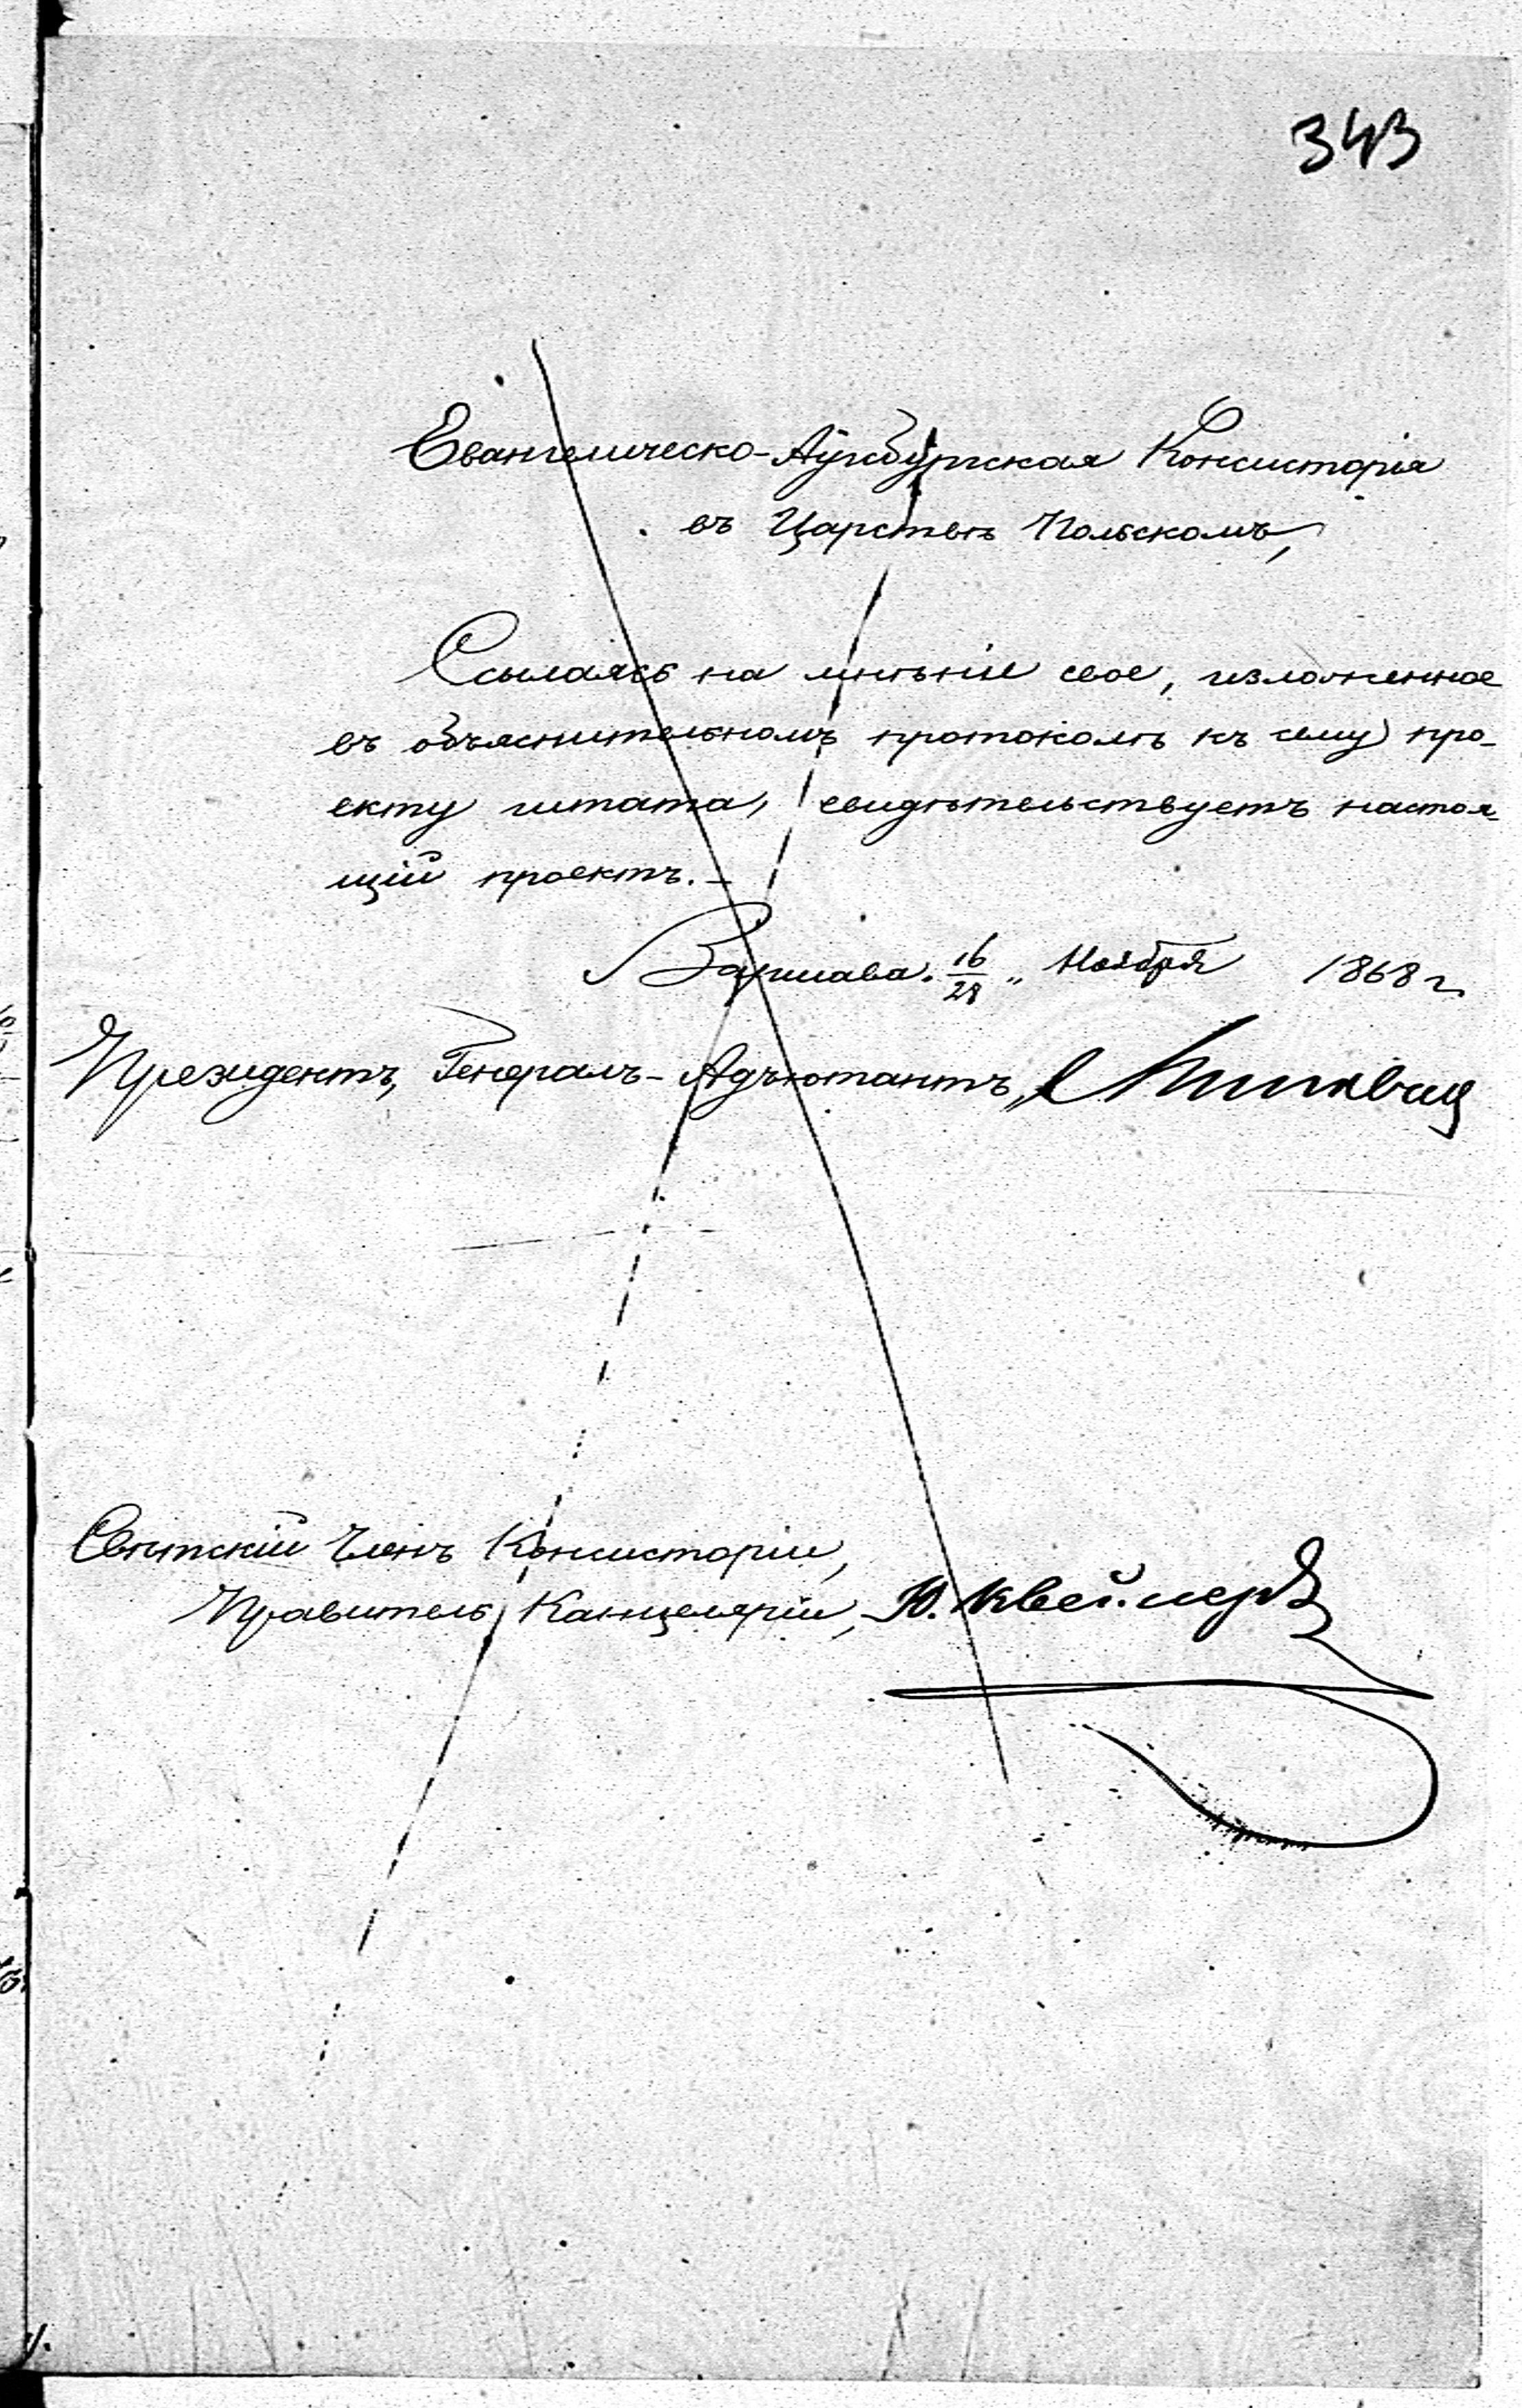 343
Евангелическо-Аугсбургская Консисторія
въ Царствѣ Польскомъ,
Ссылаясь на мнѣніе свое, изложенное
въ объяснительномъ протоколѣ къ сему про-
екту штата, свидѣтельствуетъ настоя-
щій проектъ.-
Варшава. 16/28 " Ноября 1868 г.
Президентъ, Генералъ-Адъютантъ,
Свѣтскій Членъ Консисторіи,
Правитель Канцеляріи, Ю.